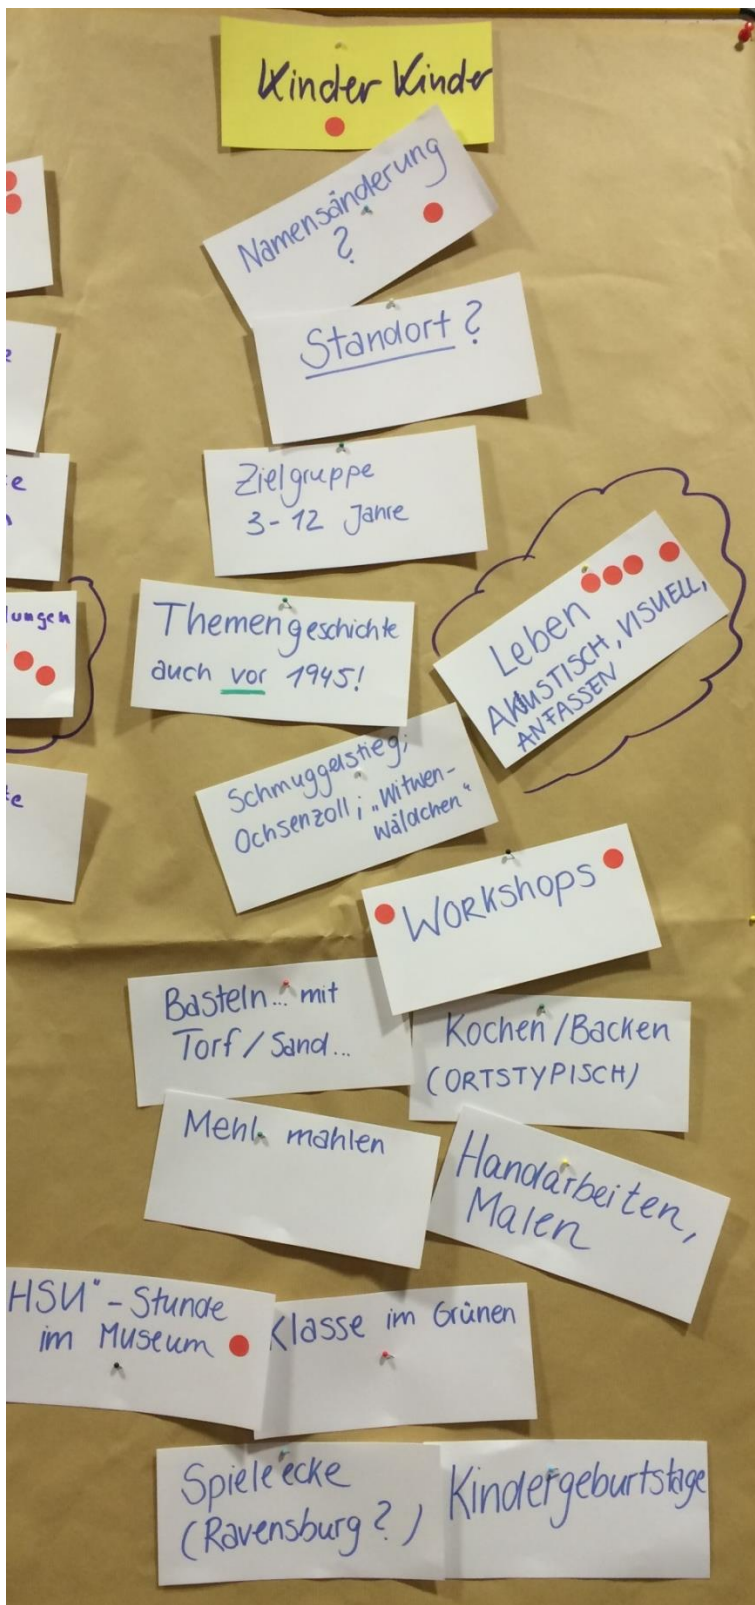 Kinder Kinder
Namensänderung
?
Standort?
Zielgruppe
3-12 Jahre
Themengeschichte
auch vor 1945!
Leben
AKUSTISCH, VISUELL,
ANFASSEN
Schmuggelstieg;
Ochsenzoll; „Witwen-
wäldchen“
Workshops
Basteln... mit
Torf/Sand...
Kochen/Backen
(ORTSTYPISCH)
Mehl mahlen
Handarbeiten,
Malen
HSU“-Stunde
im Museum
Klasse im Grünen
Spieleecke
(Ravensburg?)
Kindergeburtstage
lungen